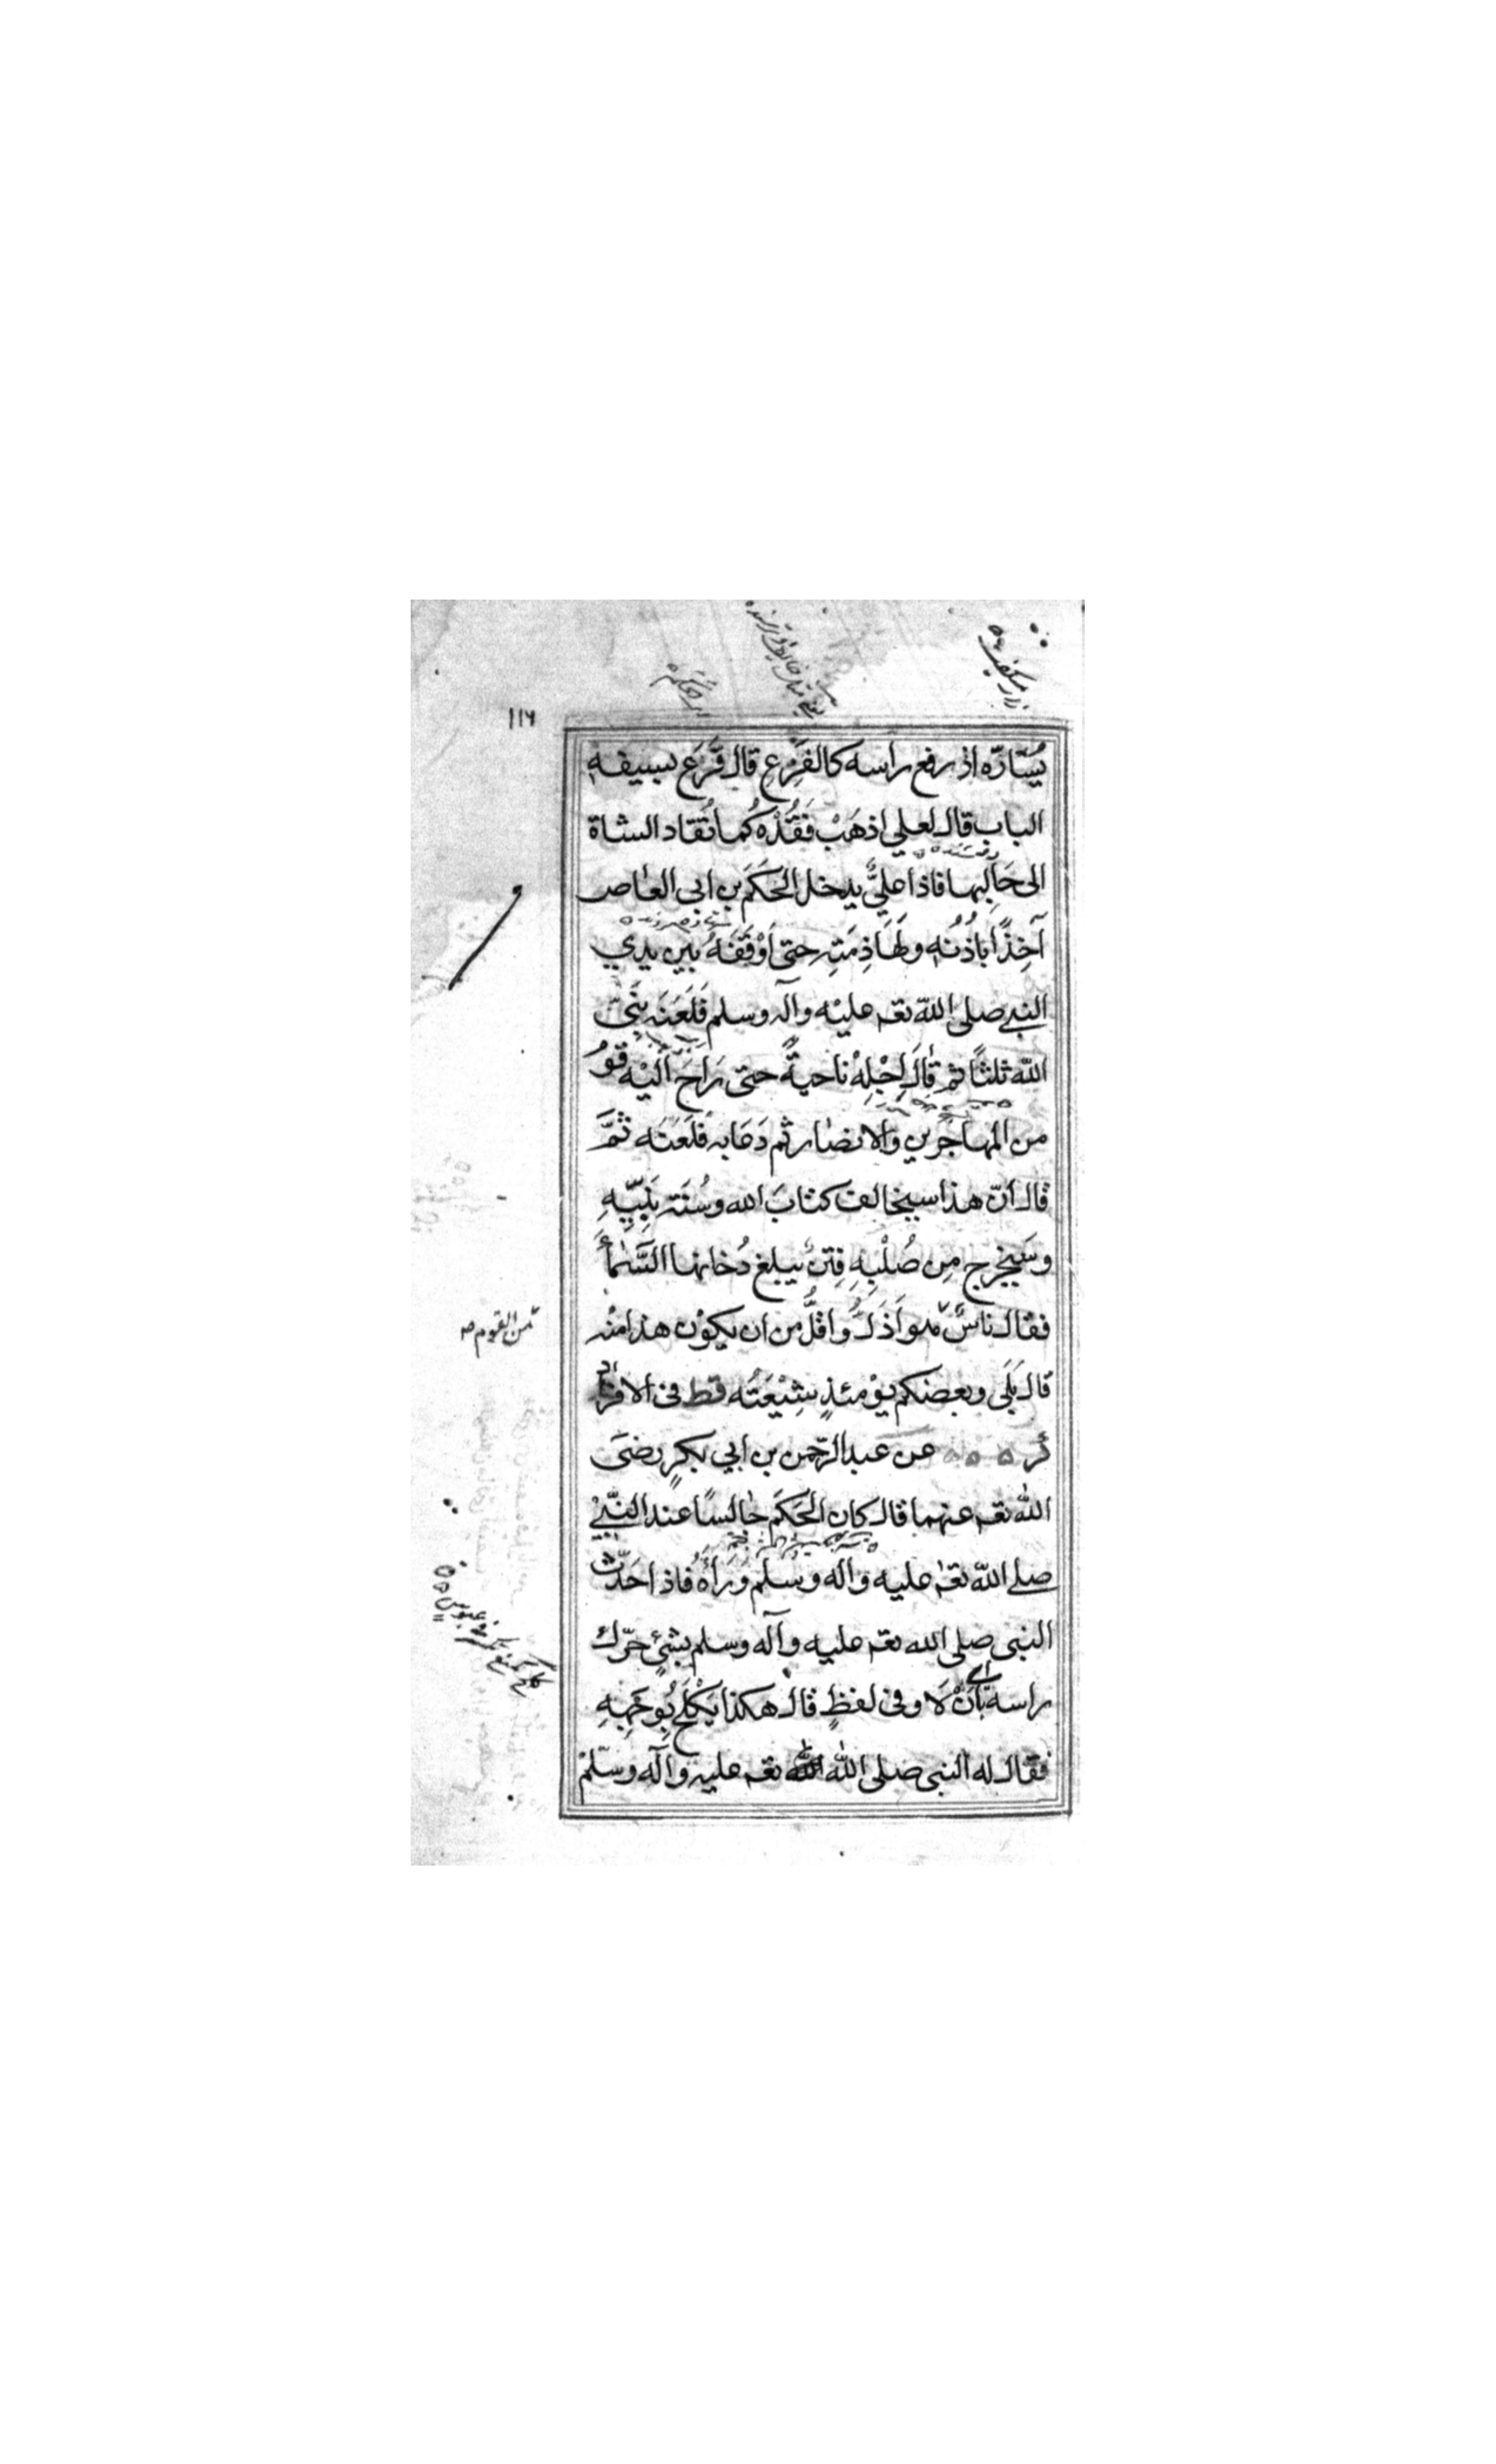 ١١٦
يُسَّارّه اذ رفع راسه كالفَزِعِ قال قَرَعَ بسيفه
الباب قال لعلي اذهَبْ فَقُدْه كُما تُقاد الشاة
الى حَالِبِها فاذا عليٌّ يدخل الحَكَم بن ابى العاص
آخِذًا بأُذُنُه ولَهَاذِمَتِه حتى اَوْقَفَهُ بين يدي
النبي صلى اللّه تعم عليْه وآله وسلم فَلَعَنَه نَبِىّ
اللّه ثلثًا ثم قال اَجْلِهْ ناحيةً حتى رَاحَ اليْه قومُ
من المهاجرين والانصار ثم دَعَا به فلَعَنَه ثمَّ
قال انّ هذا سيخالف كتابَ الله وسُنَته نَبِيّهِ
وسَيخرج مِن صُلْبِهِ فِتَنٌ يبلغ دُخانها السَّمٰاءَ
فقال ناسٌ هو اَذَلُّ واقلُّ من ان يكوْن هذا منْه
من القوم صه
قال بَلَى وبعضكم يوْمئذٍ شِيْعَتُه قط فى الافرا
كر ٥ ٥ ٥ عن عبد الرّحمن بن ابي بكرٍ رضىَ
اللّٰه تعم عنهما قال كان الحَكَم جالسًا عند النَّبِيّ
صلى اللّه تعم عليه واله وسلم وَرَاءَهُ فاذا حَدَّث
النبى صلى الله تعم عليه وآله وسلم بشئٍ حرّك
راسه اي بأنْ لَا وفى لفظٍ قال هكذا يَكْلَحُ بِوجهِهِ
فقال له النبى صلى اللّٰه تعم عليه وآله وسلّم